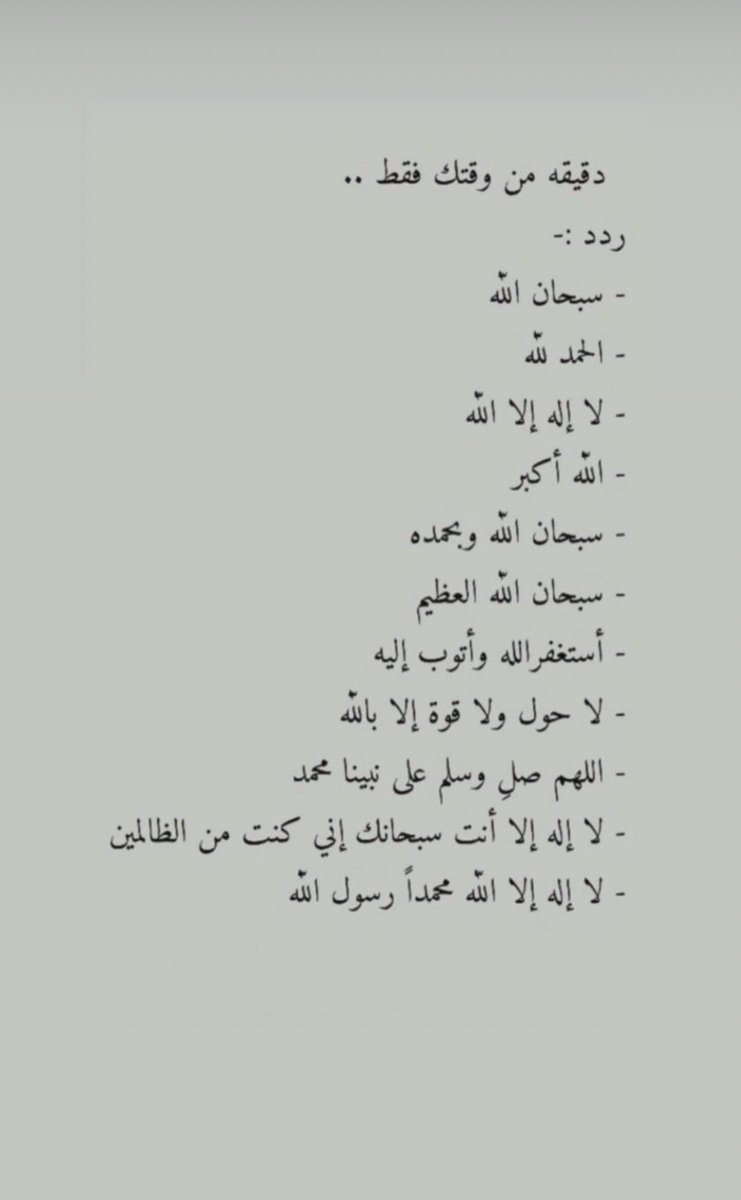 دقيقه من وقتك فقط ..
ردد :-
- سبحان الله
- الحمد لله
- لا إله إلا الله
- الله أكبر
- سبحان الله وبحمده
- سبحان الله العظيم
- أستغفرالله وأتوب إليه
- لا حول ولا قوة إلا بالله
- اللهم صلِ وسلم على نبينا محمد
- لا إله إلا أنت سبحانك إني كنت من الظالمين
- لا إله إلا الله محمداً رسول الله